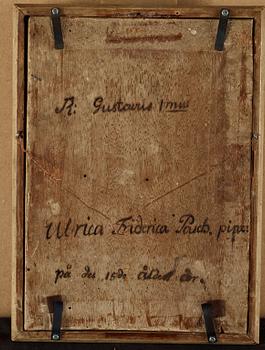 R: Gustavus 1mus
Ulrica Friderica Pasch, pinx:
på des 15de